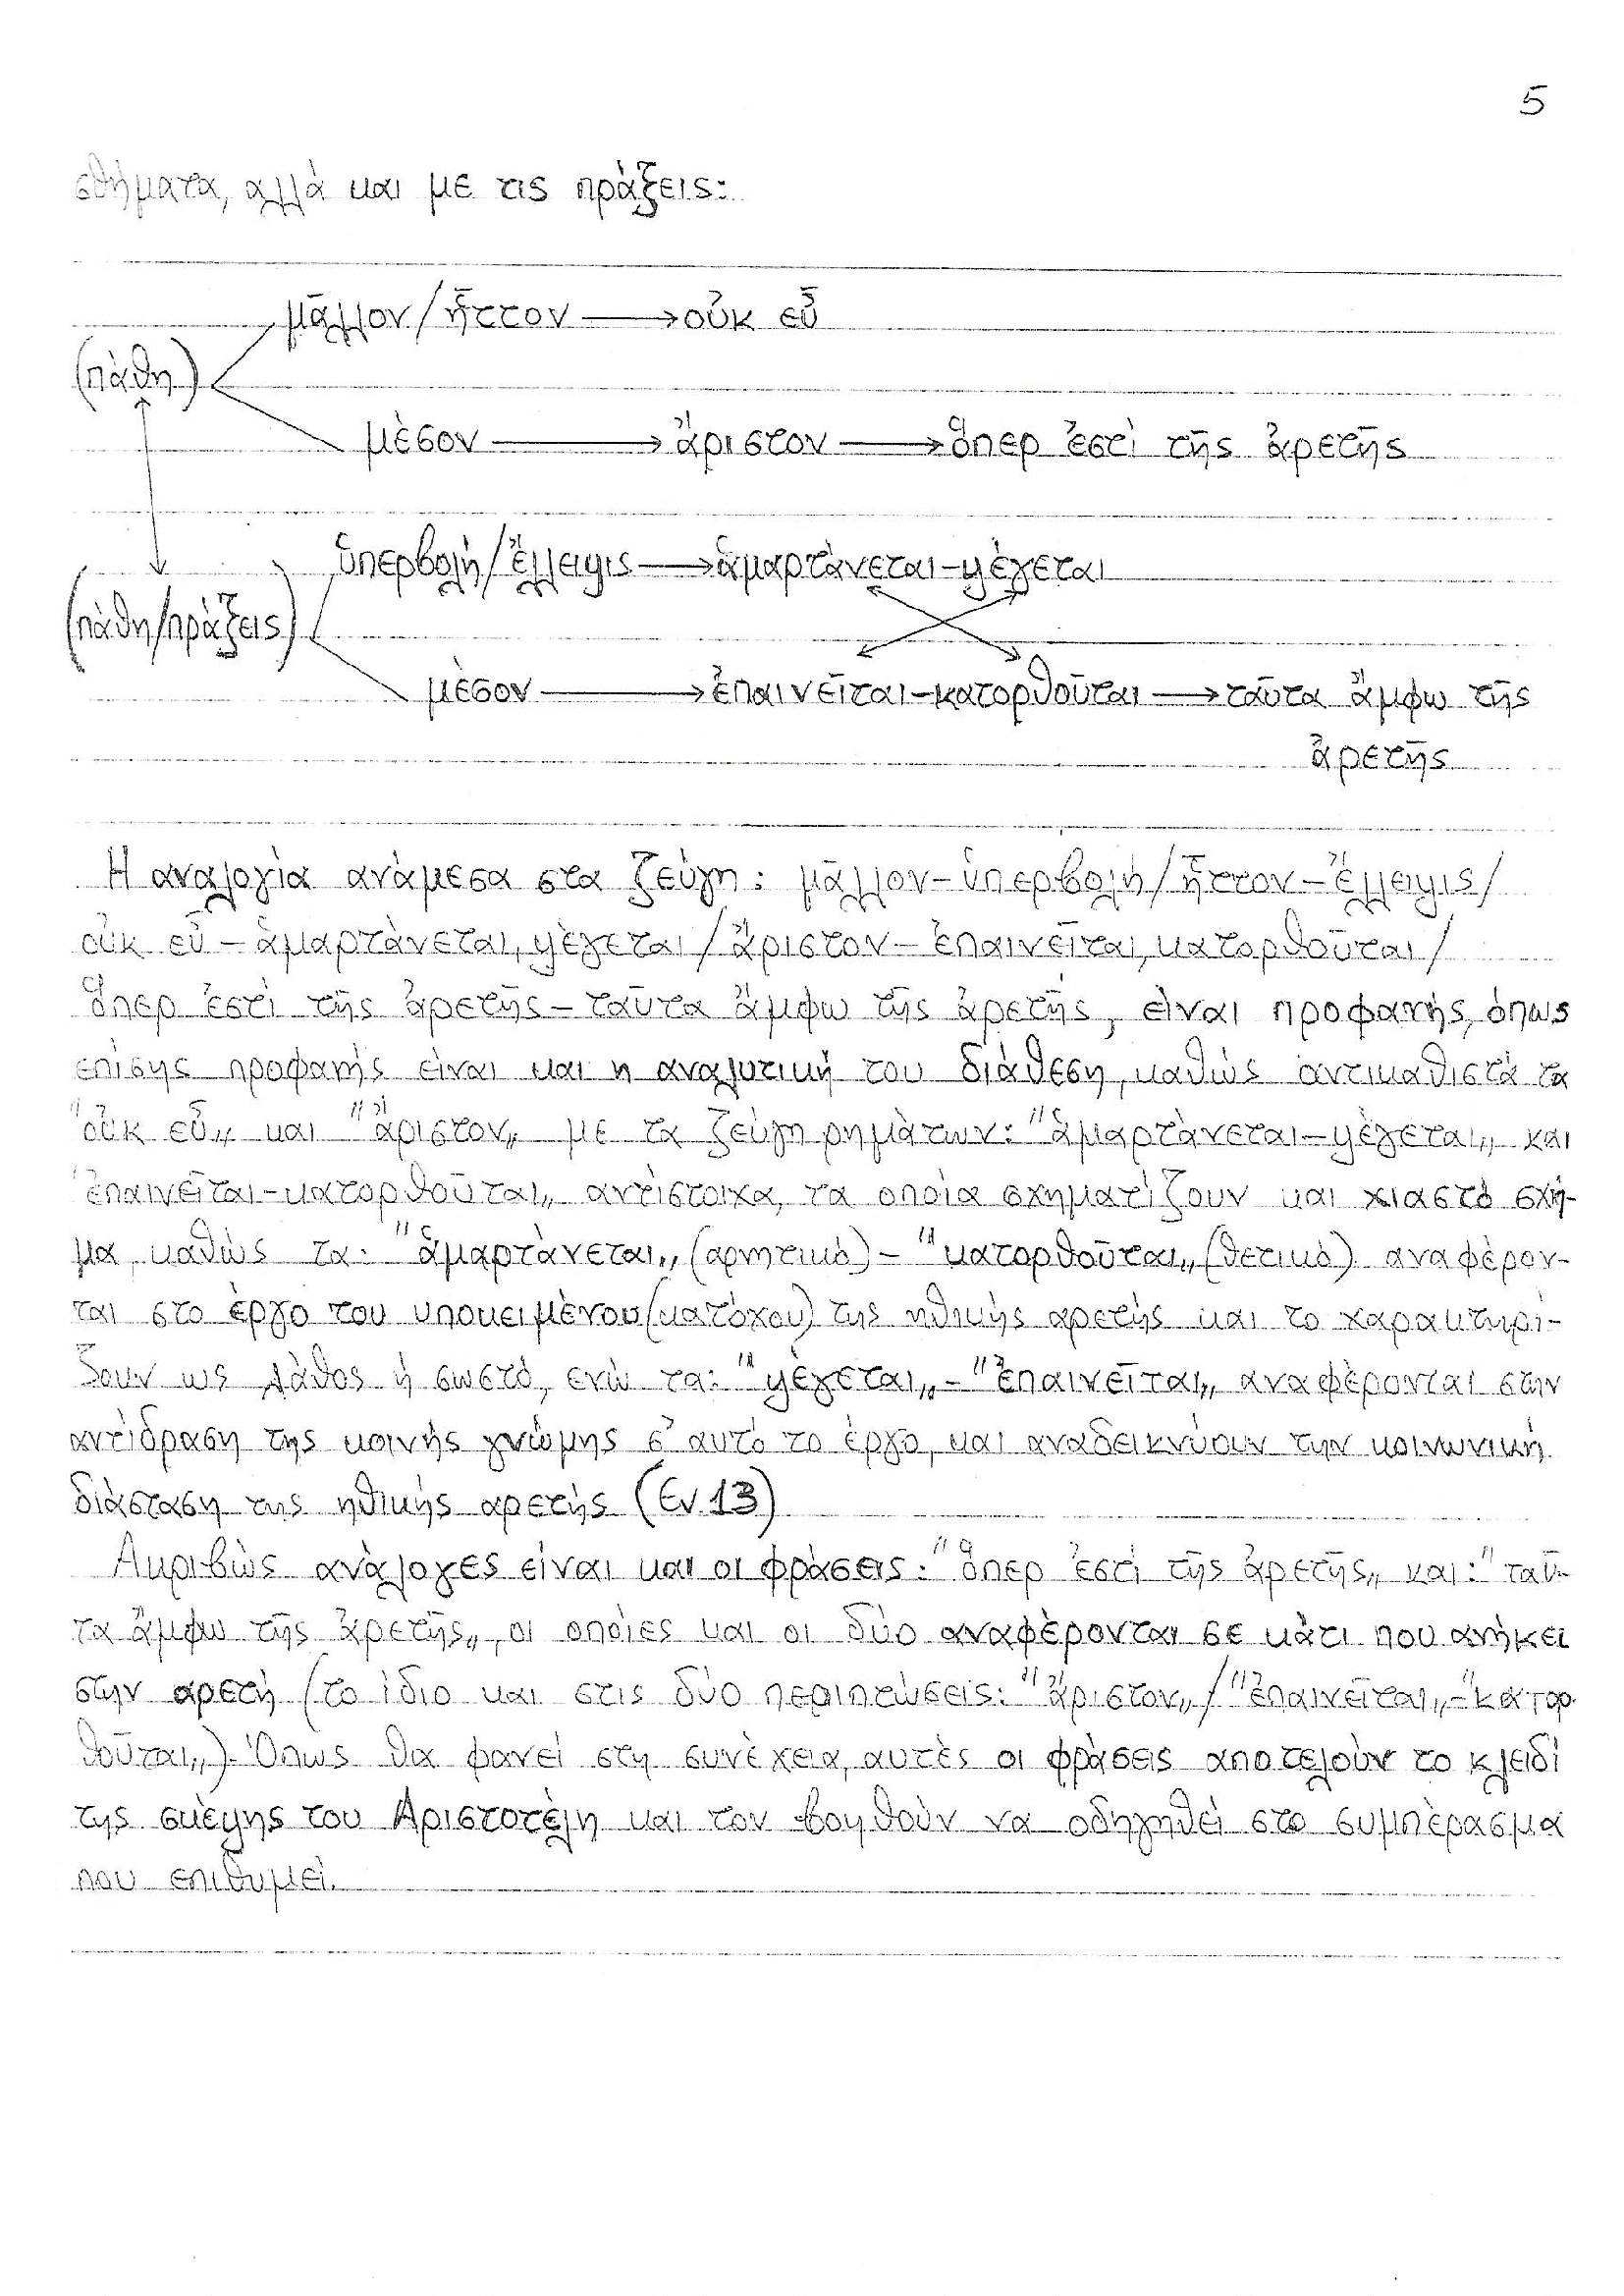 5
σθήματα, αλλά και με τις πράξεις:
μᾶλλον/ἧττον → οὐκ εὖ
(πάθη)
μέσον → ἄριστον → ὅπερ ἐστὶ τῆς ἀρετῆς
ὑπερβολὴ/ἔλλειψις → ἁμαρτάνεται-ψέγεται
(πάθη/πράξεις)
μέσον → ἐπαινεῖται-κατορθοῦται → ταῦτα ἄμφω τῆς
ἀρετῆς
Η αναλογία ανάμεσα στα ζεύγη: μᾶλλον-ὑπερβολὴ/ἧττον-ἔλλειψις/
οὐκ εὖ - ἁμαρτάνεται, ψέγεται/ἄριστον- ἐπαινεῖται, κατορθοῦται/
ὅπερ ἐστὶ τῆς ἀρετῆς - ταῦτα ἄμφω τῆς ἀρετῆς, είναι προφανής, όπως
επίσης προφανής είναι και η αναλυτική του διάθεση, καθώς αντικαθιστά τα
"οὐκ εὖ„ και "ἄριστον„ με τα ζεύγη ρημάτων: "ἁμαρτάνεται-ψέγεται„ και
"ἐπαινεῖται-κατορθοῦται„ αντίστοιχα, τα οποία σχηματίζουν και χιαστό σχή-
μα, καθώς τα: "ἁμαρτάνεται„ (αρνητικό) - "κατορθοῦται„ (θετικό) αναφέρον-
ται στο έργο του υποκειμένου (κατόχου) της ηθικής αρετής και το χαρακτηρί-
ζουν ως λάθος ή σωστό, ενώ τα: "ψέγεται„ - "ἐπαινεῖται„ αναφέρονται στην
αντίδραση της κοινής γνώμης σ' αυτό το έργο, και αναδεικνύουν την κοινωνική
διάσταση της ηθικής αρετής (Εν.13)
Ακριβώς ανάλογες είναι και οι φράσεις: "ὅπερ ἐστὶ τῆς ἀρετῆς„ και: "ταῦ-
τα ἄμφω τῆς ἀρετῆς„, οι οποίες και οι δύο αναφέρονται σε κάτι που ανήκει
στην αρετή (το ίδιο και στις δύο περιπτώσεις: "ἄριστον„/"ἐπαινεῖται„-"κατορ-
θοῦται„). Όπως θα φανεί στη συνέχεια, αυτές οι φράσεις αποτελούν το κλειδί
της σκέψης του Αριστοτέλη και τον βοηθούν να οδηγηθεί στο συμπέρασμα
που επιθυμεί.